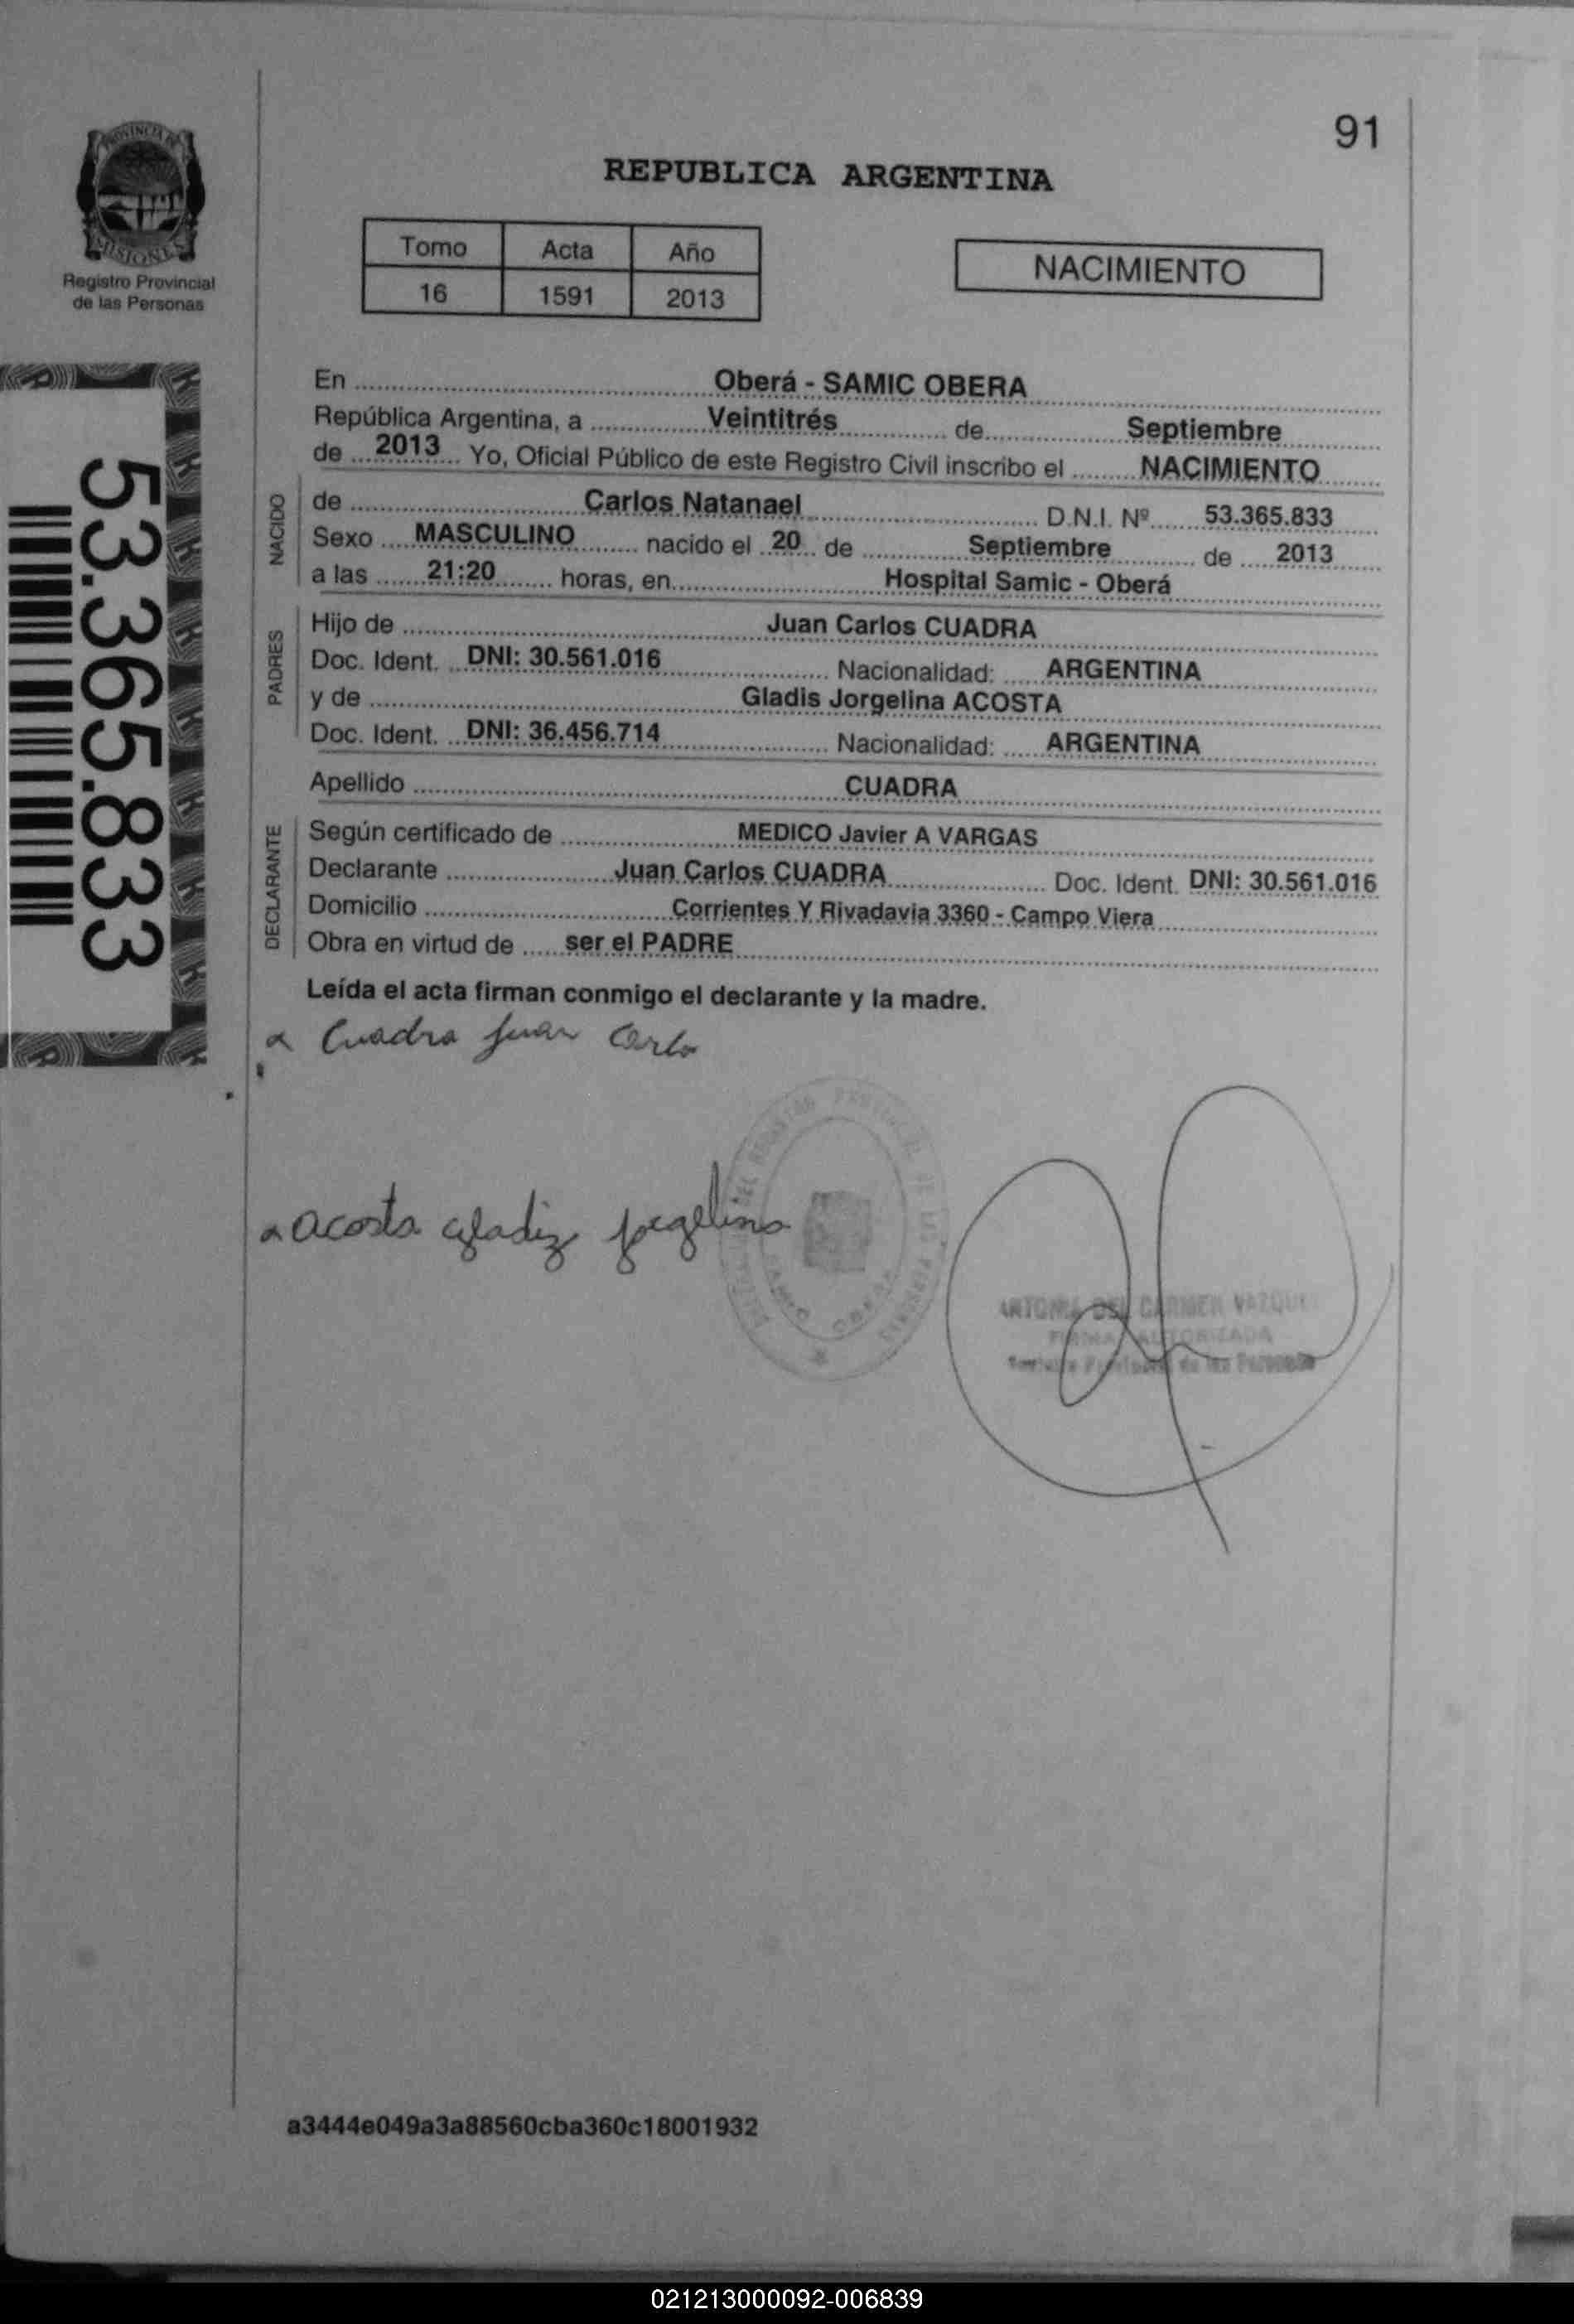 91
PROVINCIA DE
MISIONES
Registro Provincial
de las Personas
REPUBLICA ARGENTINA
Tomo Acta Año
16 1591 2013
NACIMIENTO
53.365.833
En ........ Oberá - SAMIC OBERA ........
República Argentina, a ........ Veintitrés ........ de ........ Septiembre ........
de ... 2013 ... Yo, Oficial Público de este Registro Civil inscribo el ........ NACIMIENTO ........
NACIDO
de ........ Carlos Natanael ........ D.N.I. Nº ........ 53.365.833
Sexo ..... MASCULINO ........ nacido el .. 20 .. de ........ Septiembre ........ de ..... 2013 ......
a las ....... 21:20 ........ horas, en ........ Hospital Samic - Oberá ........
PADRES
Hijo de ........ Juan Carlos CUADRA ........
Doc. Ident. ... DNI: 30.561.016 ........ Nacionalidad: ...... ARGENTINA ........
y de ........ Gladis Jorgelina ACOSTA ........
Doc. Ident. ... DNI: 36.456.714 ........ Nacionalidad: ...... ARGENTINA ........
Apellido ........ CUADRA ........
DECLARANTE
Según certificado de ........ MEDICO Javier A VARGAS ........
Declarante ........ Juan Carlos CUADRA ........ Doc. Ident. DNI: 30.561.016
Domicilio ........ Corrientes Y Rivadavia 3360 - Campo Viera ........
Obra en virtud de ...... ser el PADRE ........
Leída el acta firman conmigo el declarante y la madre.
Cuadra Juan Carlo
acosta gladiz jorgelina
DEL CARMEN
FIRMA AUTORIZADA
de las Personas
a3444e049a3a88560cba360c18001932
021213000092-006839